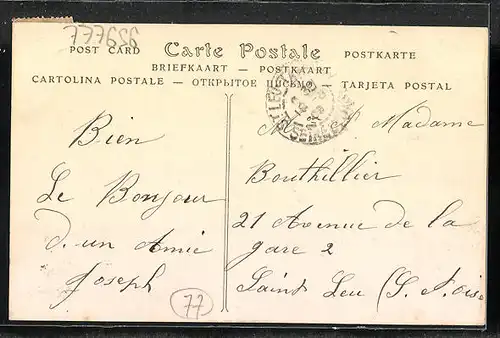 POST CARD Carte Postale POSTKARTE
BRIEFKAART — POSTKAART
CARTOLINA POSTALE — ОТКРЫТОЕ TARJETA POSTAL
Bien
Le Bonjour
d'un Amie
Joseph
77
Madame
Bouthillier
21 Avenue de la
gare 2
Saint Leu (S. & Oise